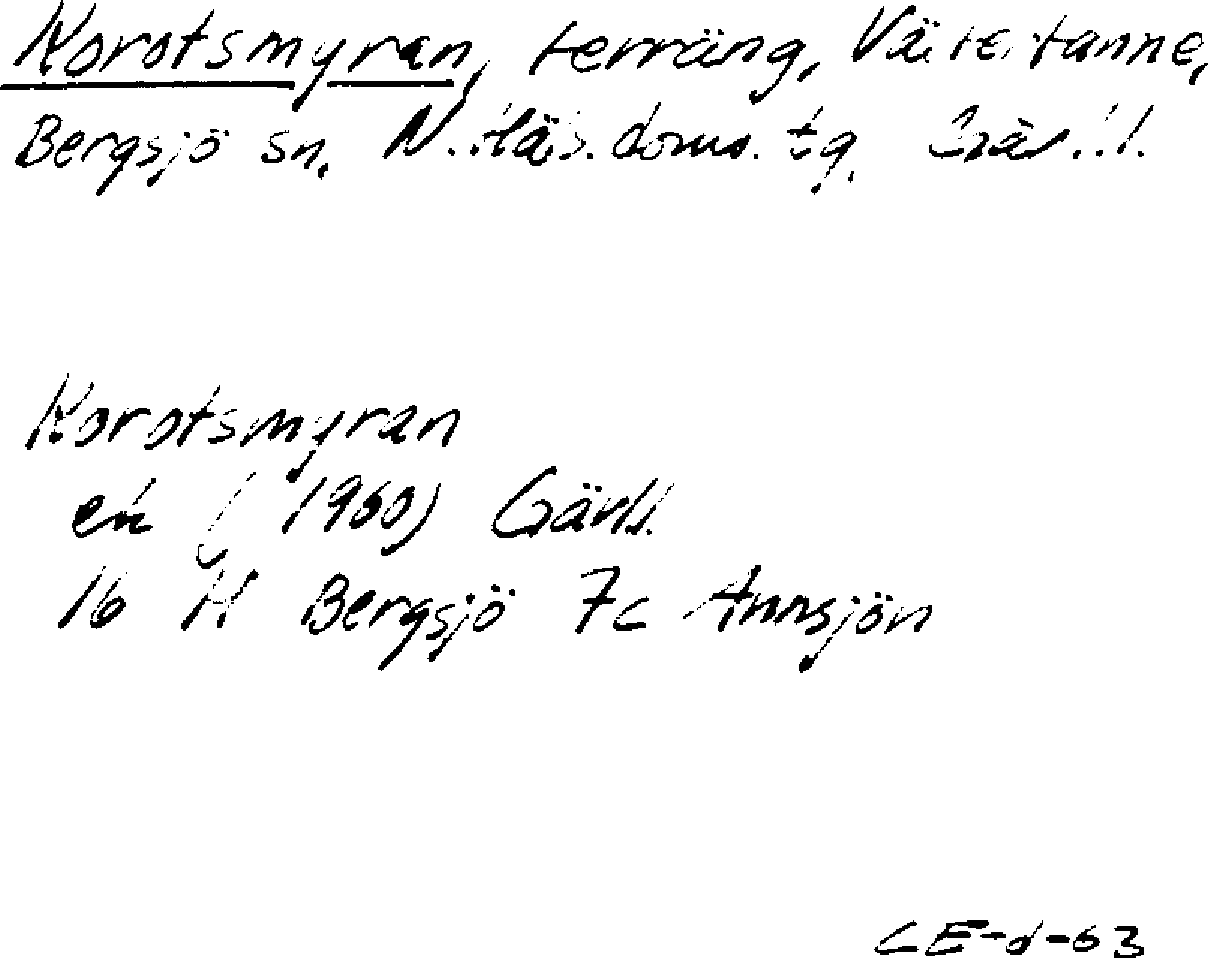 Korotsmyran, terräng, Västertanne,
Bergsjö sn, N. Häls. doms. tg. Gävl.l.
Korotsmyran
ek ( 1960) Gävl.l.
16 H Bergsjö 7c Annsjön
CE-d-63